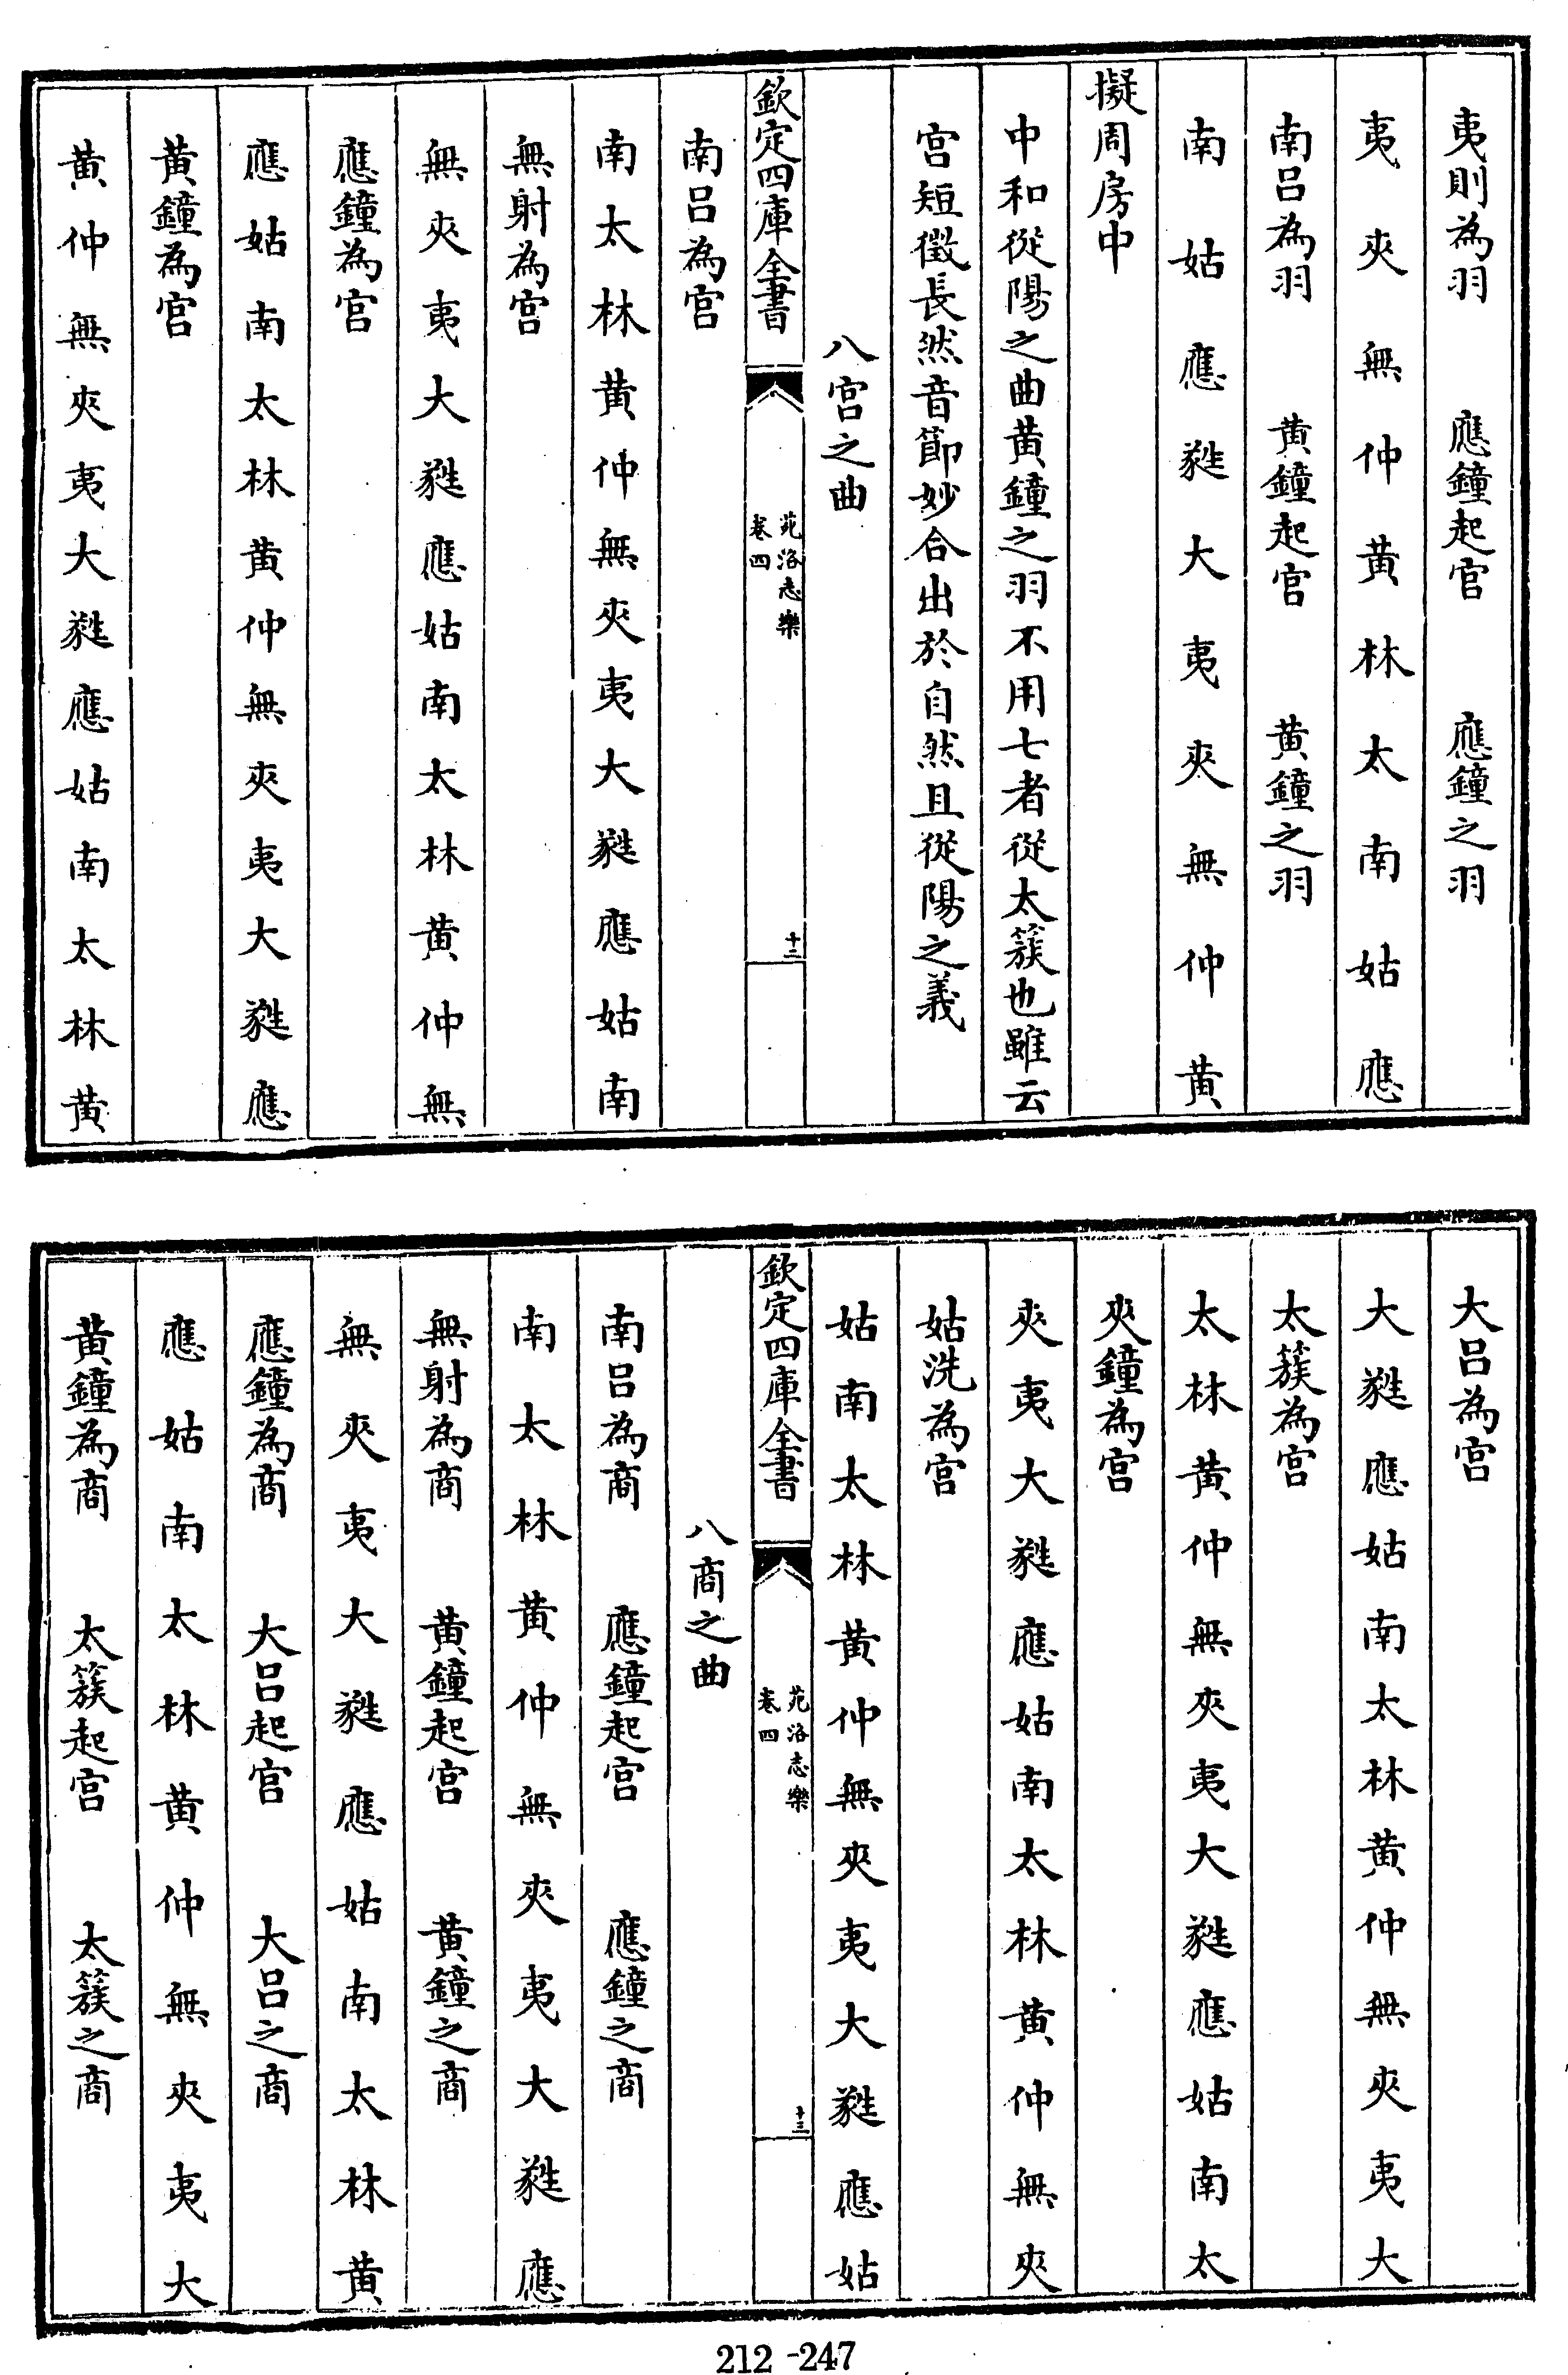 夷則為羽　應鐘起宮　應鐘之羽
夷夾無仲黃林太南姑應
南呂為羽　黃鐘起宮　黃鐘之羽
南姑應蕤大夷夾無仲黃
擬周房中
中和從陽之曲黃鐘之羽不用七者從太簇也雖云
宮短徵長然音節妙合出於自然且從陽之義
八宮之曲
欽定四庫全書
苑洛志樂
卷四
十二
南呂為宮
南太林黃仲無夾夷大蕤應姑南
無射為宮
無夾夷大蕤應姑南太林黃仲無
應鐘為宮
應姑南太林黃仲無夾夷大蕤應
黃鐘為宮
黃仲無夾夷大蕤應姑南太林黃
大呂為宮
大蕤應姑南太林黃仲無夾夷大
太簇為宮
太林黃仲無夾夷大蕤應姑南太
夾鐘為宮
夾夷大蕤應姑南太林黃仲無夾
姑洗為宮
姑南太林黃仲無夾夷大蕤應姑
欽定四庫全書
苑洛志樂
卷四
十三
八商之曲
南呂為商　應鐘起宮　應鐘之商
南太林黃仲無夾夷大蕤應
無射為商　黃鐘起宮　黃鐘之商
無夾夷大蕤應姑南太林黃
應鐘為商　大呂起宮　大呂之商
應姑南太林黃仲無夾夷大
黃鐘為商　太簇起宮　太簇之商
212-247